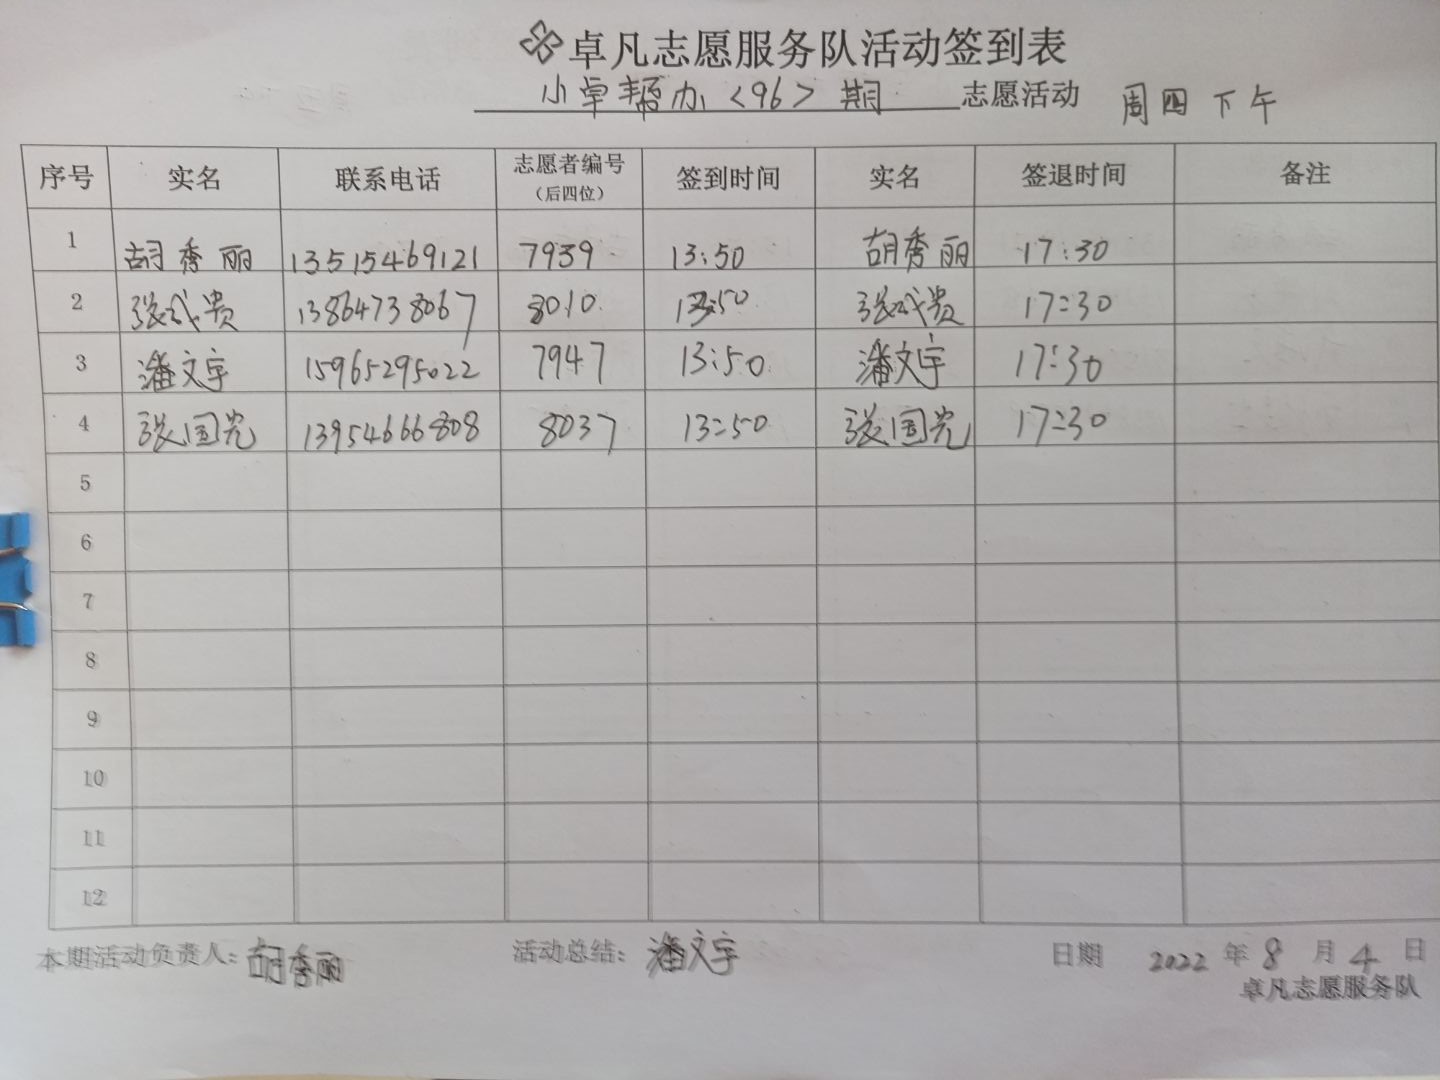 卓凡志愿服务队活动签到表
小卓帮办<96>期 志愿活动 周四下午
序号 实名 联系电话 志愿者编号（后四位） 签到时间 实名 签退时间 备注
1 胡秀丽 13515469121 7939 13:50 胡秀丽 17:30
2 张成贵 13864738067 8010 13:50 张成贵 17:30
3 潘文宇 15965295022 7947 13:50 潘文宇 17:30
4 张国光 13954666808 8037 13:50 张国光 17:30
5
6
7
8
9
10
11
12
本期活动负责人：胡秀丽 活动总结：潘文宇 日期 2022 年 8 月 4 日
卓凡志愿服务队